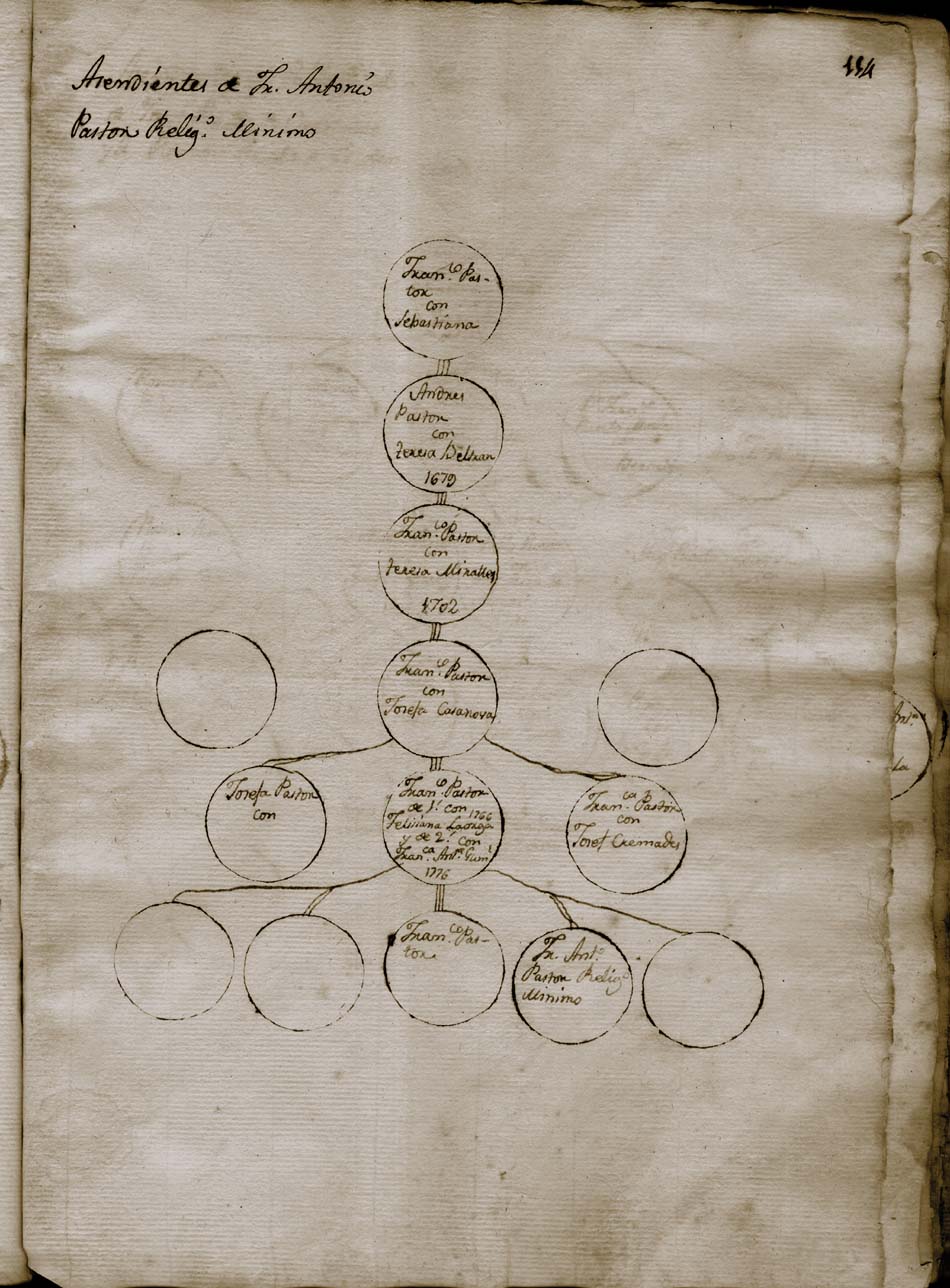 114
Asendientes de Fr. Antonio
Pastor Relig.º Minimo
Fran.co Pas-
tor
con
Sebastiana
Andres
Pastor
con
Teresa Beltran
1679
Fran.co Pastor
con
Teresa Miralles
1702
Fran.co Pastor
con
Josefa Casanova
Josefa Pastor
con
Fran.co Pastor
de 1.ª con 1766
Felisiana
y de 2.ª con
Fran.ca Ant.ª
1776
Fran.ca Pastor
con
Josef Cremades
Fran.co Pas-
tor
Fr. Ant.º
Pastor Relig.º
Minimo